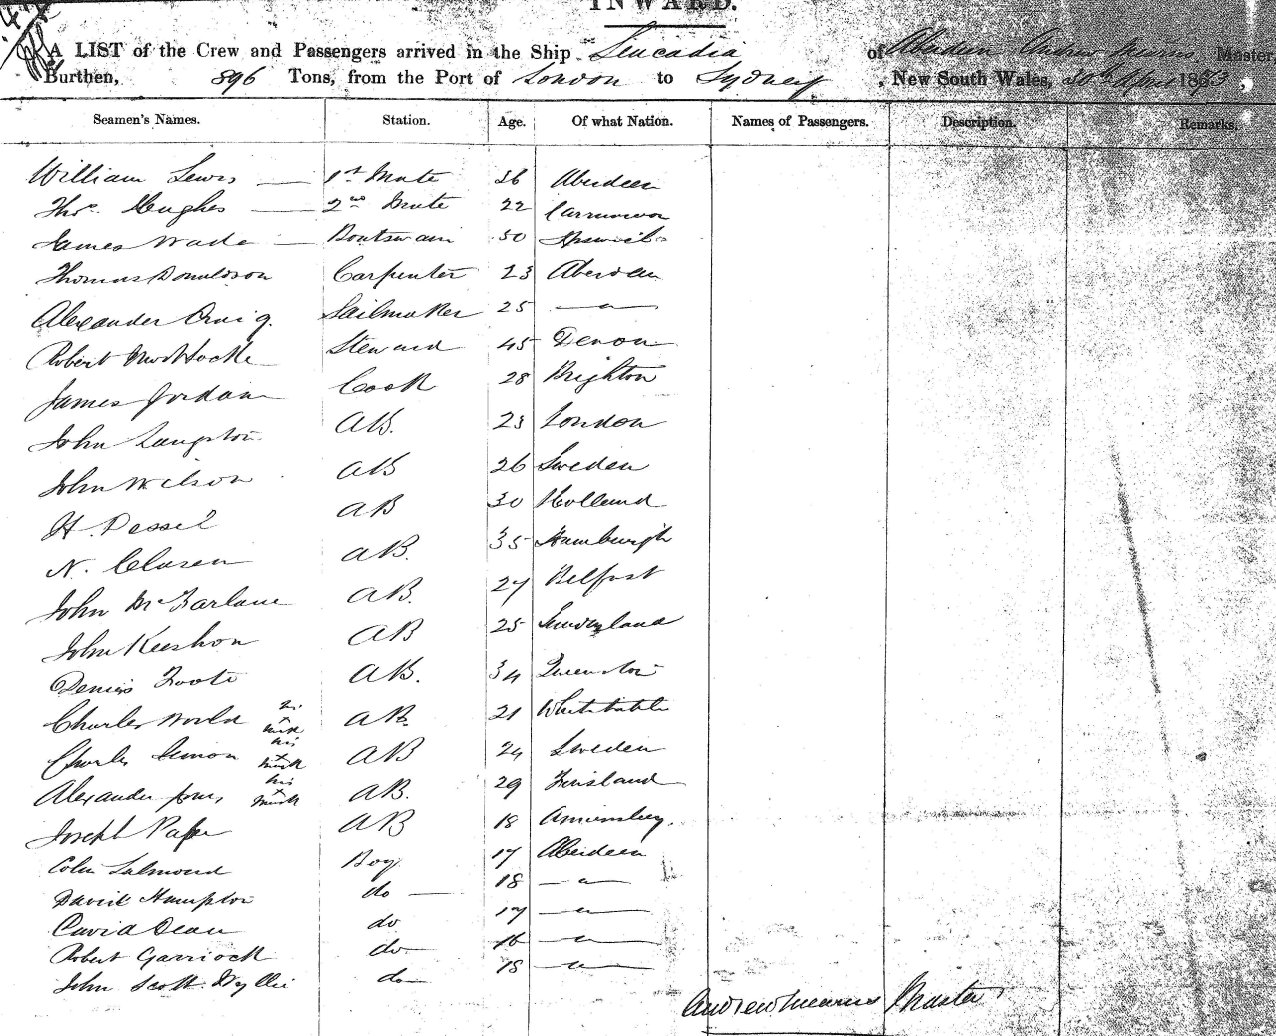 INWARD.
A LIST of the Crew and Passengers arrived in the Ship Leucadia of Aberdeen Andrew Mearns Master
Burthen, 896 Tons, from the Port of London to Sydney, New South Wales, 30th April 1873,
Seamen's Names. Station. Age. Of what Nation. Names of Passengers. Description. Remarks.
William Lewis — 1st Mate 26 Aberdeen
Thos. Hughes — 2nd Mate 22 Carnarvon
James Wade — Boatswain 50 Ipswich
Thomas Donaldson Carpenter 23 Aberdeen
Alexander Craig. Sailmaker 25 — " —
Robert Steward 45 Devon
James Jordan Cook 28 Brighton
John Langston AB. 23 London
John Wilson AB 26 Sweden
H. Dessel AB 30 Holland
N. Clasen AB. 35 Hamburgh
John McFarlane AB. 27 Belfast
John Keeshon AB 25 Sunderland
Denis Foote AB. 34 Queenstown
Charles World his x mark AB. 21 Whitstable
Charles Simon his x mark AB 24 Sweden
Alexander his x mark AB. 29 Finland
Joseph AB 18
Colin Salmond Boy 17 Aberdeen
David Hampton do — 18 — " —
David Dean do 17 — " —
Robert Garriock do 16 — " —
John Scott Wyllie do 18 — " —
Andrew Mearns Master